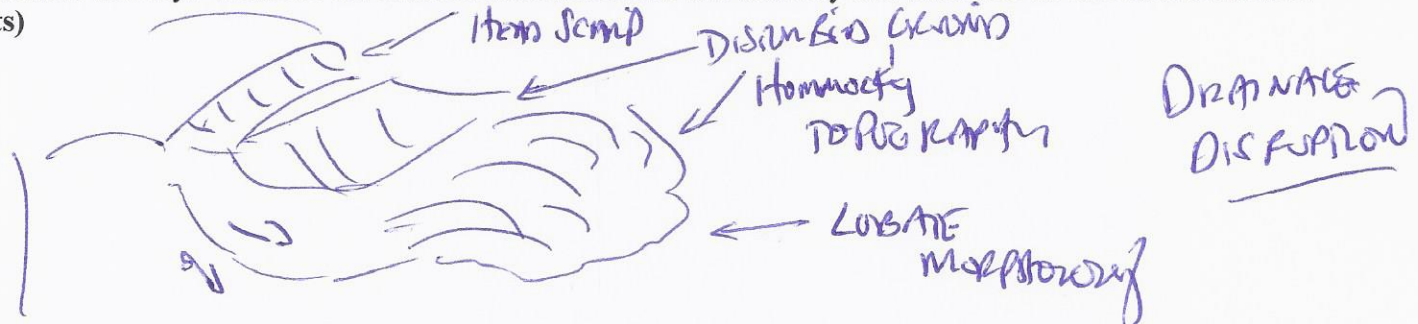 ts)
HEAD SCARP
DISTURBED GROUND
HOMMOCKY
TOPOGRAPHY
DRAINAGE
DISRUPTION
LOBATE
MORPHOLOGY